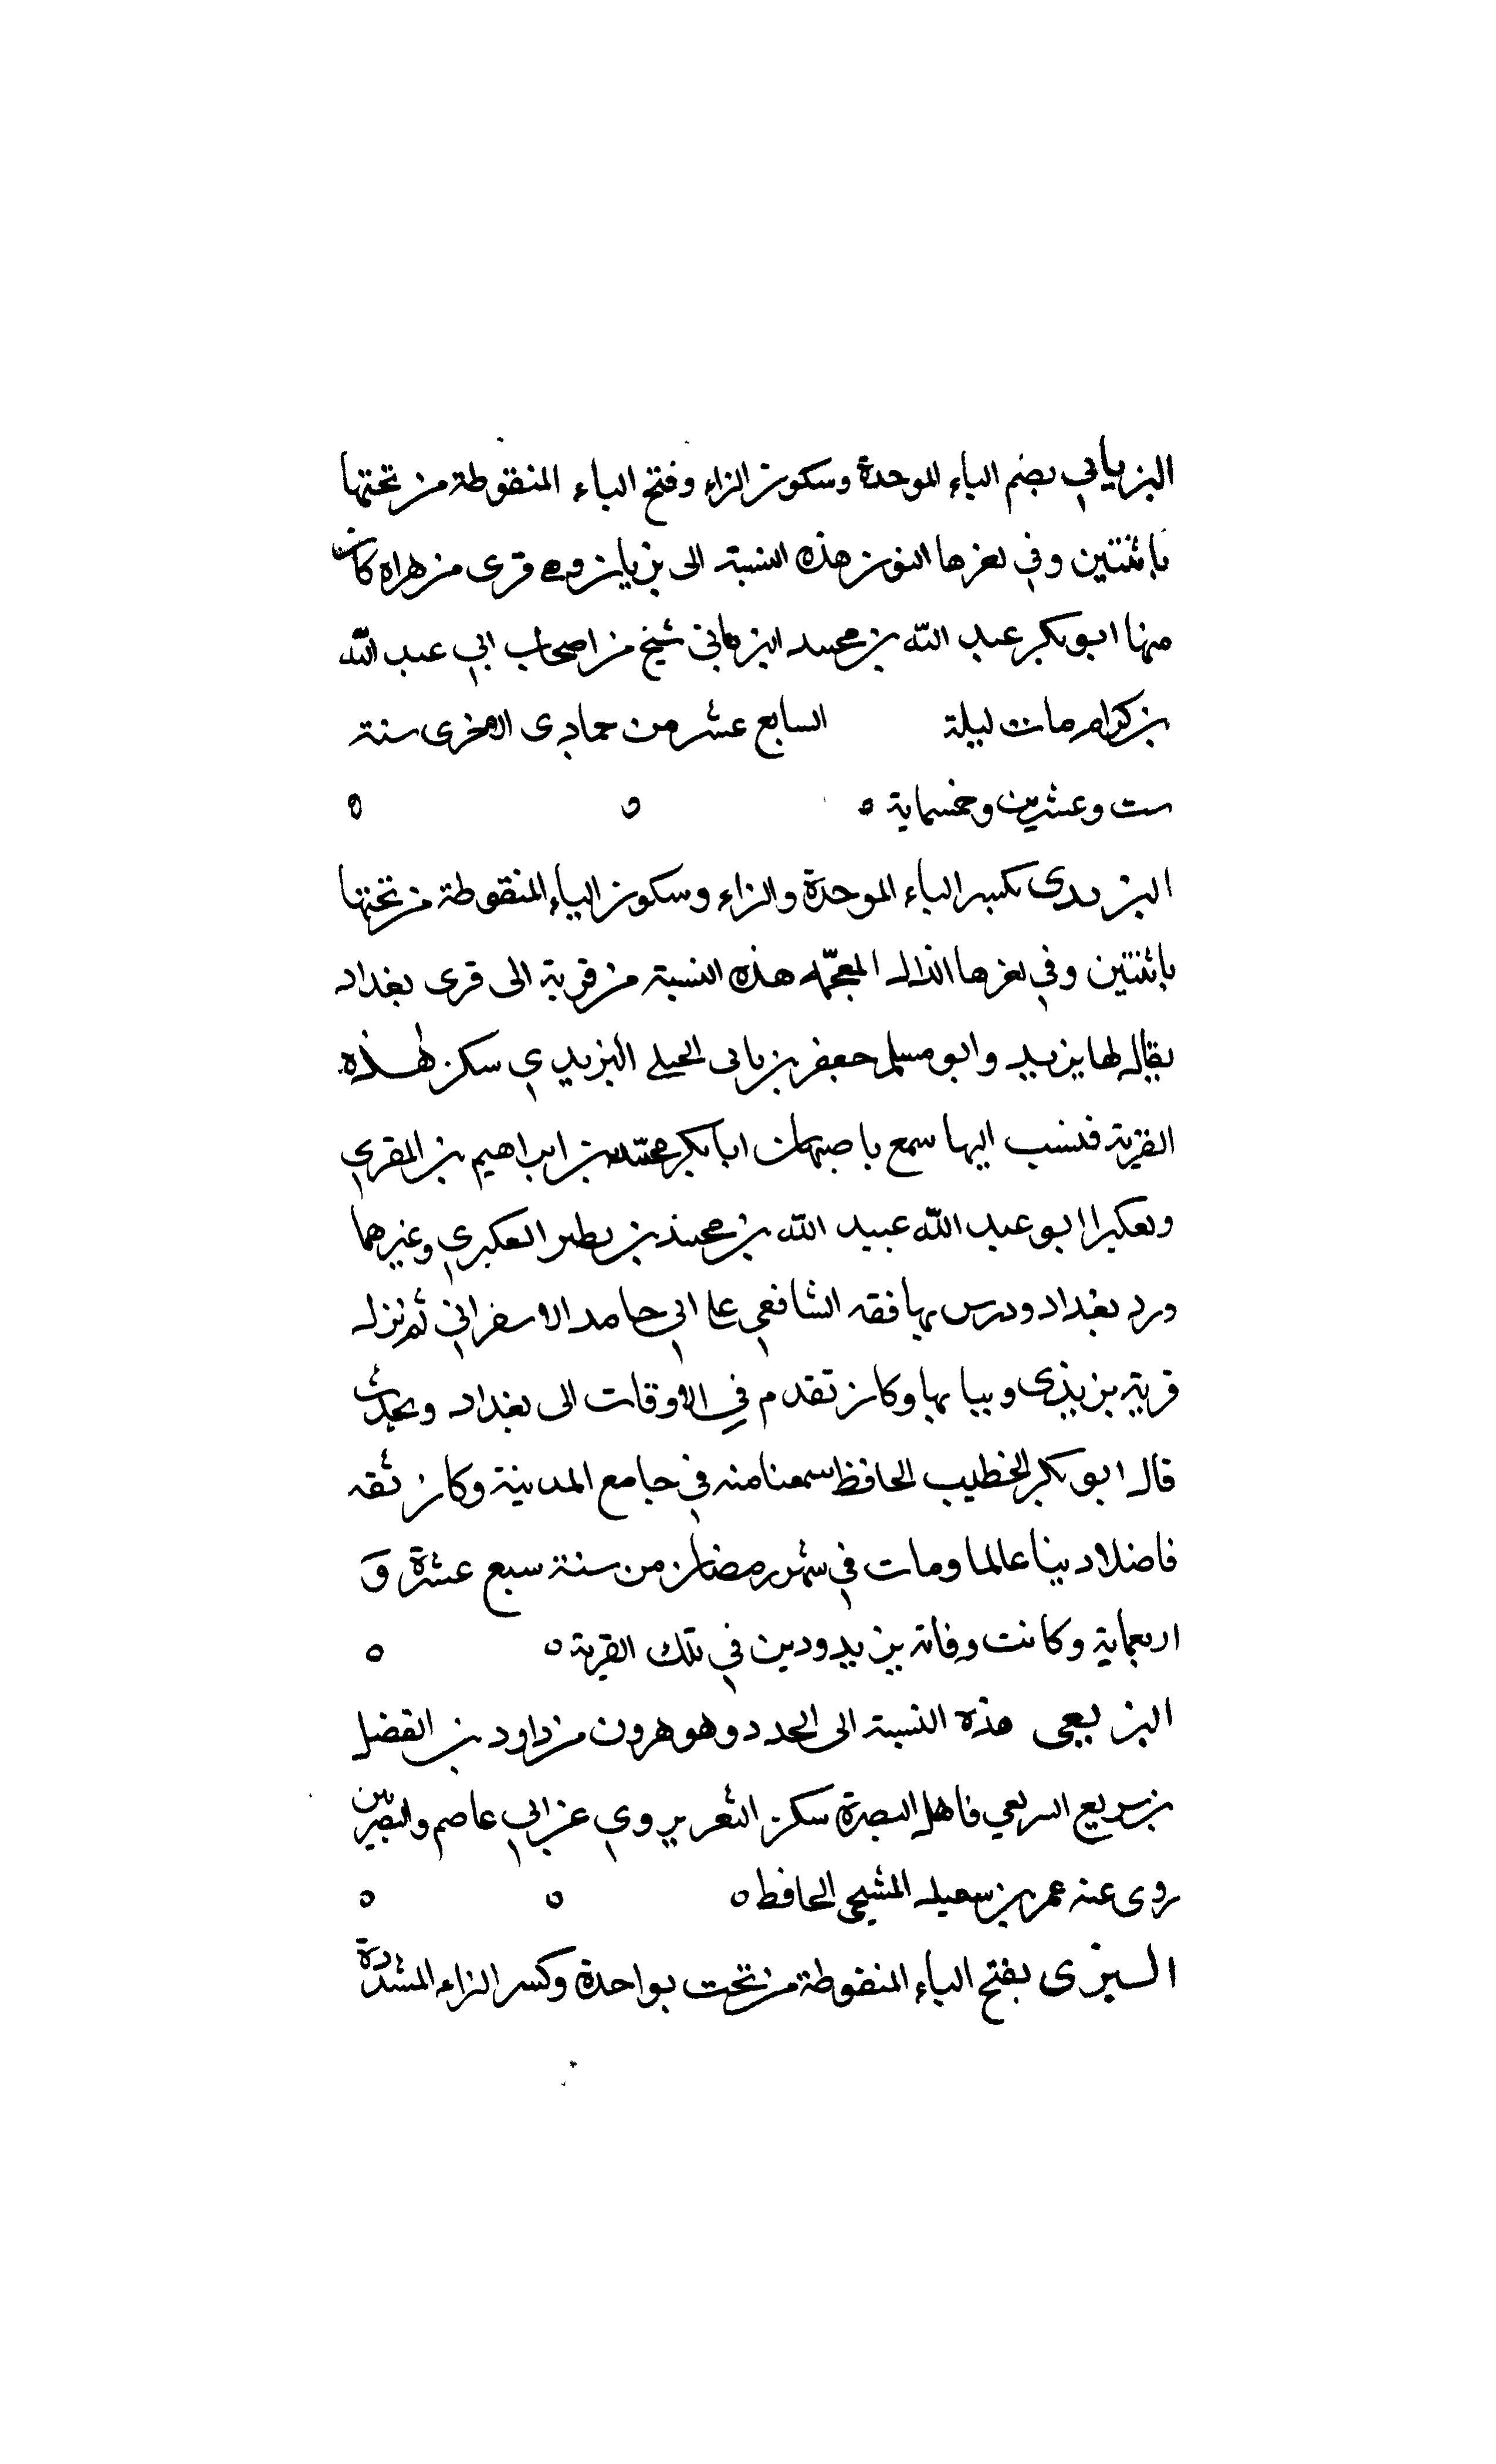 البزياني بضم الباء الموحدة وسكون الزاء وفتح الياء المنقوطة من تحتها
باثنتين وفي اخرها النون هذه النسبة الى بزيان وهي قرى من هراه كان
منها ابو بكر عبد الله بن محمد البزياني شيخ من اصحاب ابي عبد الله
بن كرام مات ليلة السابع عشر من جمادى الاخرى سنة
ست وعشرين وخمسماية ه
البزيدى بكسر الباء الموحدة والزاء وسكون الياء المنقوطة من تحتها
باثنتين وفي اخرها الذال المعجمه هذه النسبة من قرية الى قرى بغداد
يقال لها يزيد وابو مسلم جعفر بن باى الجيلي البزيدي سكن هذه
القرية فنسب اليها سمع باصبهان ابا بكر محمد بن ابراهيم بن المقري
وبعكبرا ابو عبد الله عبيد الله بن محمد بن بطه العكبري وغيرهما
ورد بغداد ودرس بها فقه الشافعي على ابي حامد الاسفراني ثم نزل
قرية بزيذى وبيا بها وكان تقدم في الاوقات الى بغداد ويحدث
قال ابو بكر الخطيب الحافظ سمعنا منه في جامع المدينة وكان ثقه
فاضلا دينا عالما ومات في شهر رمضان من سنة سبع عشرة و
اربعماية وكانت وفاته بزيد ودين في تلك القرية ه
البزيعى هذه النسبة الى الجد دوهو هرون من داود بن الفضل
بن بزيع البزيعي فاهل البصرة سكن الثغر يروي عن ابي عاصم والبصريين
روى عنه عمر بن سعيد المنبجي الحافظ ه
البزى بفتح الباء المنقوطة من تحت بواحدة وكسر الزاء المشددة